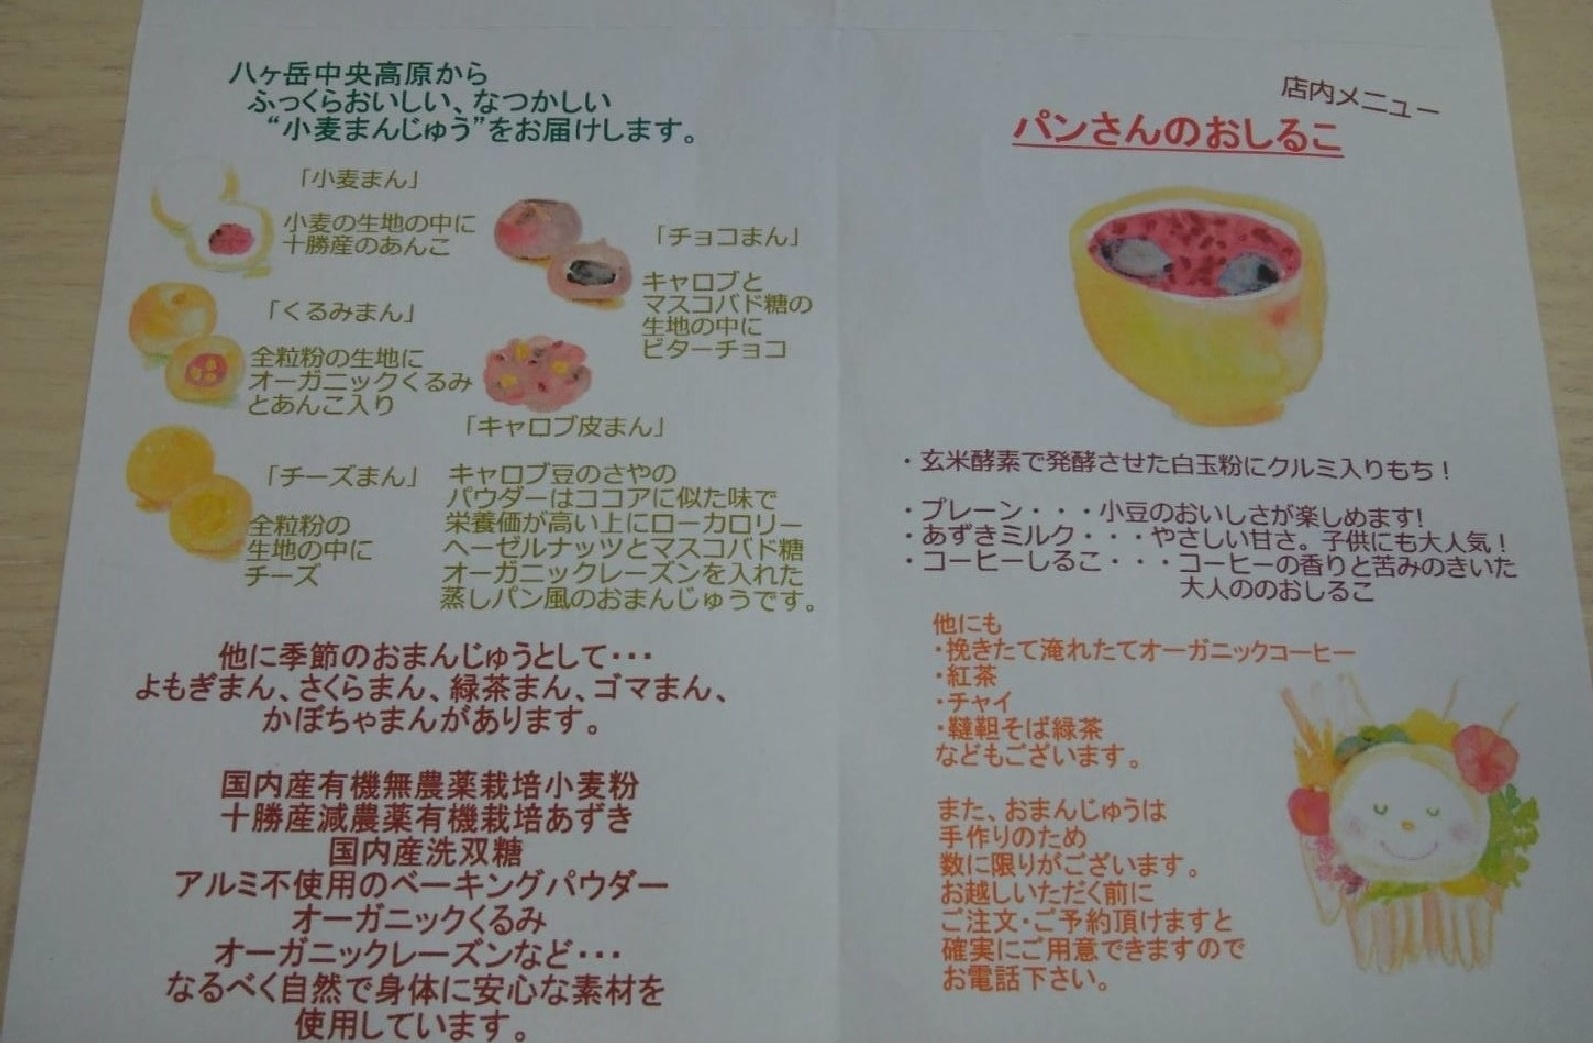 八ヶ岳中央高原から
ふっくらおいしい、なつかしい
“小麦まんじゅう”をお届けします。
「小麦まん」
小麦の生地の中に
十勝産のあんこ
「くるみまん」
全粒粉の生地に
オーガニックくるみ
とあんこ入り
「チーズまん」
全粒粉の
生地の中に
チーズ
「チョコまん」
キャロブと
マスコバド糖の
生地の中に
ビターチョコ
「キャロブ皮まん」
キャロブ豆のさやの
パウダーはココアに似た味で
栄養価が高い上にローカロリー
ヘーゼルナッツとマスコバド糖
オーガニックレーズンを入れた
蒸しパン風のおまんじゅうです。
他に季節のおまんじゅうとして・・・
よもぎまん、さくらまん、緑茶まん、ゴマまん、
かぼちゃまんがあります。
国内産有機無農薬栽培小麦粉
十勝産減農薬有機栽培あずき
国内産洗双糖
アルミ不使用のベーキングパウダー
オーガニックくるみ
オーガニックレーズンなど・・・
なるべく自然で身体に安心な素材を
使用しています。
店内メニュー
パンさんのおしるこ
・玄米酵素で発酵させた白玉粉にクルミ入りもち！
・プレーン・・・小豆のおいしさが楽しめます!
・あずきミルク・・・やさしい甘さ。子供にも大人気！
・コーヒーしるこ・・・コーヒーの香りと苦みのきいた
大人ののおしるこ
他にも
・挽きたて淹れたてオーガニックコーヒー
・紅茶
・チャイ
・韃靼そば緑茶
などもございます。
また、おまんじゅうは
手作りのため
数に限りがございます。
お越しいただく前に
ご注文・ご予約頂けますと
確実にご用意できますので
お電話下さい。